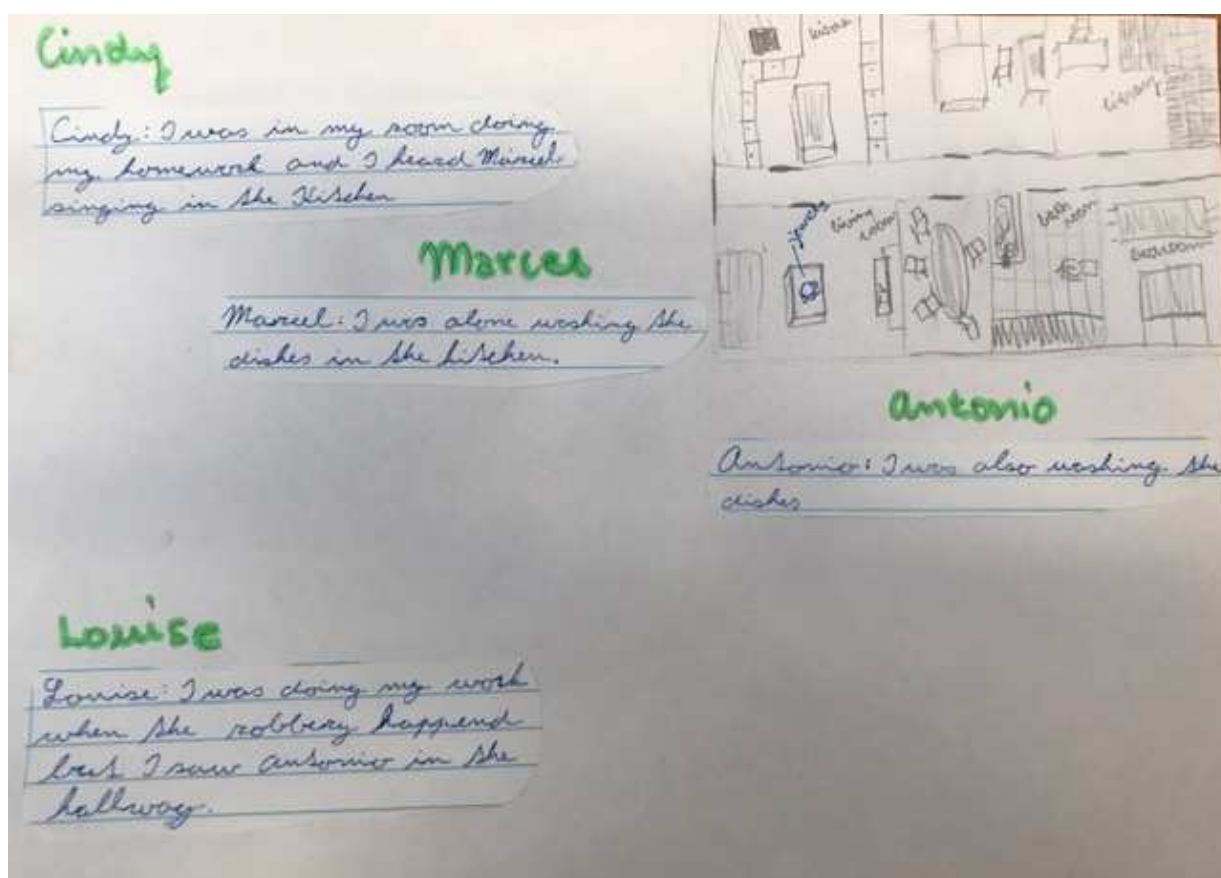 Cindy
Cindy: I was in my room doing
my homework and I heard Marcel
singing in the Kitchen
Marcel
Marcel: I was alone washing the
dishes in the kitchen.
library
jewels
living
room
bath
room
bedroom
Antonio
Antonio: I was also washing the
dishes
Louise
Louise: I was doing my work
when the robbery happend
but I saw Antonio in the
hallway.